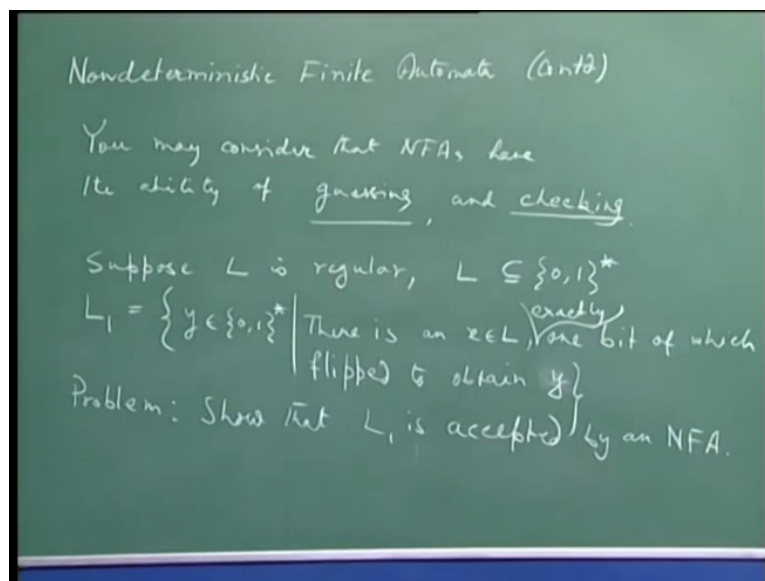 Nondeterministic Finite Automata (Contd)
You may consider that NFAs have
the ability of guessing, and checking.
Suppose L is regular, L ⊆ {0,1}*
L₁ = { y ∈ {0,1}* | There is an x ∈ L, exactly one bit of which
flipped to obtain y}
Problem: Show that L₁ is accepted by an NFA.